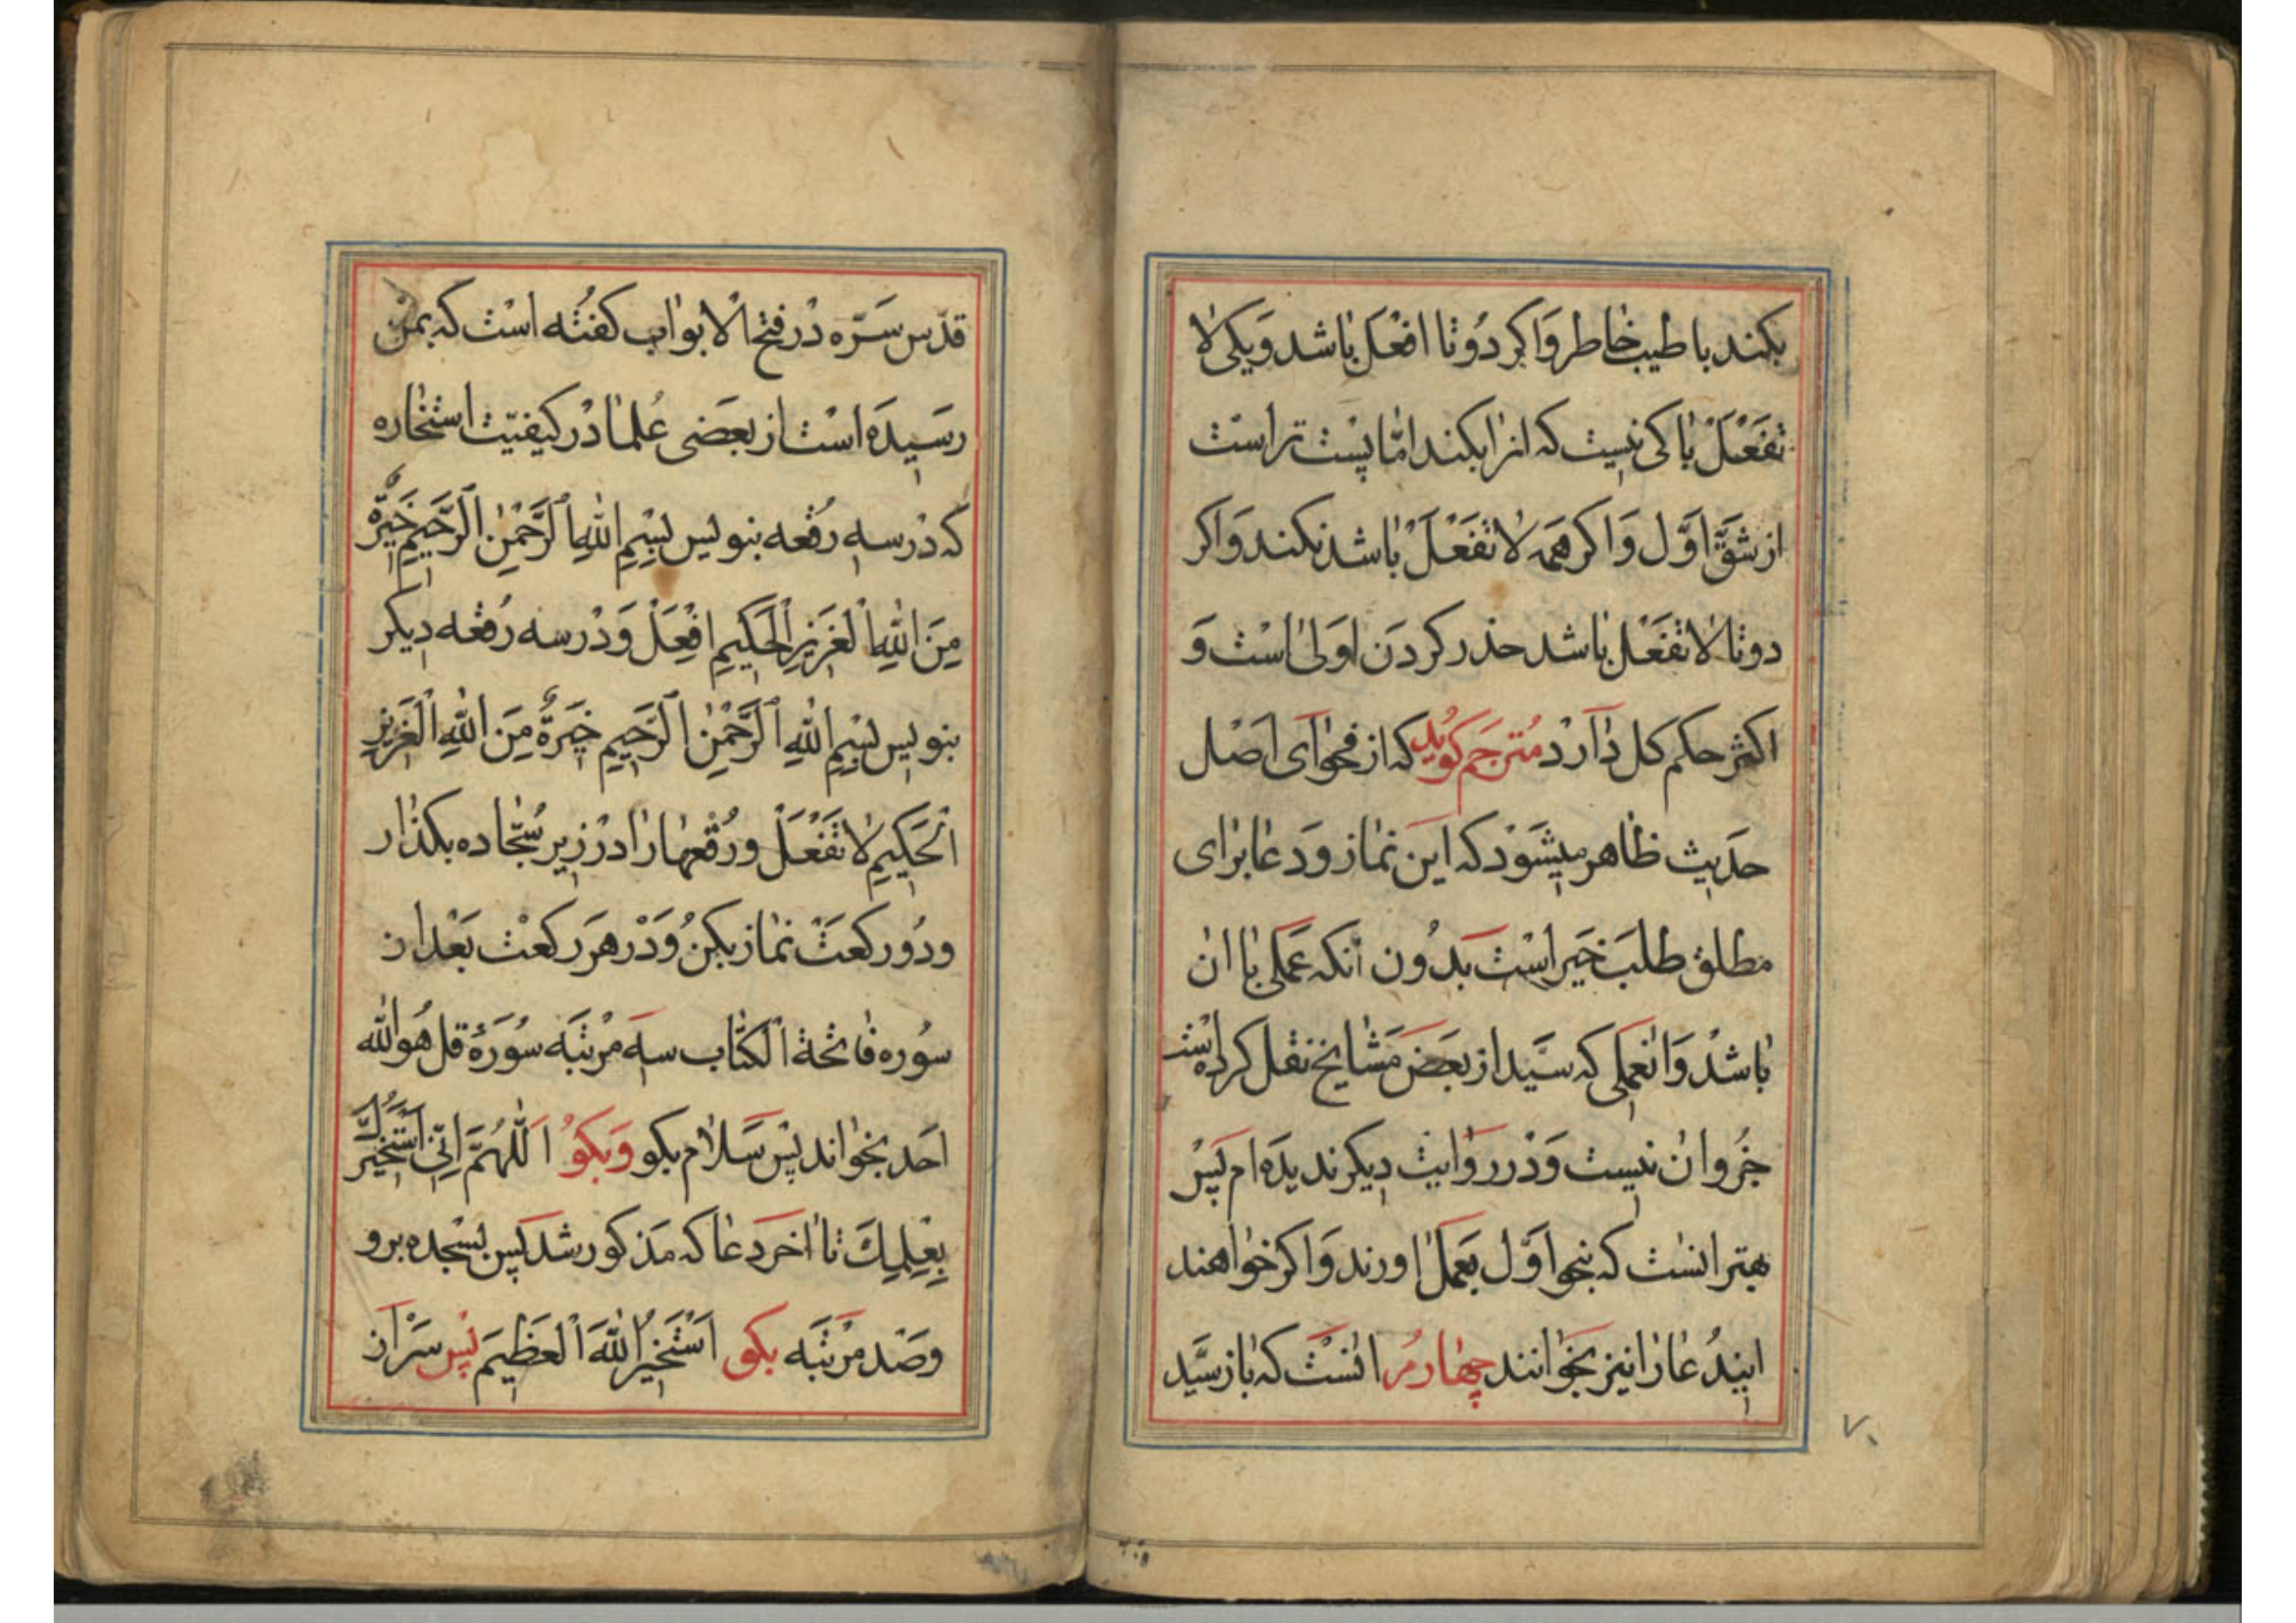 بکند با طیب خاطر وَاکر دُوتا افْعَل باشد وَیکی لا
تَفْعَلْ باکی نیست که انرا بکند امّا پست تر است
از شقّ اوّل وَاکر همَه لا تَفْعَلْ باشد نکند وَاکر
دوتا لا تفعَل باشد حذر کردَن اوَلی است وَ
اکثر حکم کل دٰارَد مُترجَم کوُید که از فحوٰای اصَل
حدَیث ظاهر میشَوَد که این نماز وَدعا برٰای
مطلق طلبَ خَیر اسْت بدُون انکه عَملی با ان
باشدْ وَانعملی که سیّد از بعَض مَشایخ نقل کرده است
جزُو ان نیست وَدر روَایت دیکر ندیدَه ام پسَ
بهتر انست که بنحو اوّل بعَمل اورند وَاکر خوٰاهند
ایندُعا رٰا نیز بخوَانند چهارمُ انسْت که باز سیَّد
قدّس سَرّه دْر فتح الابوٰاب کفتُه اسْت که بمن
رسَیدَه اسْت از بعَضی عُلما دْر کیفیّت استخاره
که دْر سه رُقعه بنویس بِسْمِ اللهِ الرَّحْمٰنِ الرَّحیمِ خِیَرَةٌ
مِنَ اللهِ الْعَزیزِ الْحَکیمِ افْعَلْ وَدْر سه رُقعه دیکر
بنویس بِسْمِ اللهِ الرَّحْمٰنِ الرَّحیمِ خِیَرَةٌ مِنَ اللهِ الْعَزیزِ
الْحَکیمِ لا تَفْعَلْ ورُقْعها رٰا دْر زیر سُجّاده بکذار
ودُو رکعَتْ نماز بکنُ وَدْر هرَ رکعْت بَعْد از
سوُره فاتحَة الکتاب سه مرْتبَه سوُرَهٔ قل هُو الله
احَد بخوٰاند پسَ سَلام بکو وَبکوُ اَللّهُمَّ اِنّی اَسْتَخیرُكَ
بِعِلمِكَ تا اخرَ دعا که مَذکور شد پسَ بسْجده برو
وصَد مرْتبَه بکو اَسْتَخیرُ اللهَ الْعَظیمَ پسَ سَرْ از
۷۰